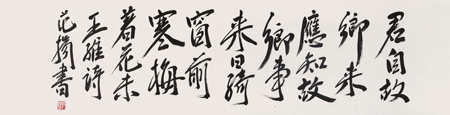 君自故
鄉来
應知故
鄉事
来日綺
窗前
寒梅
著花未
王維詩
范書